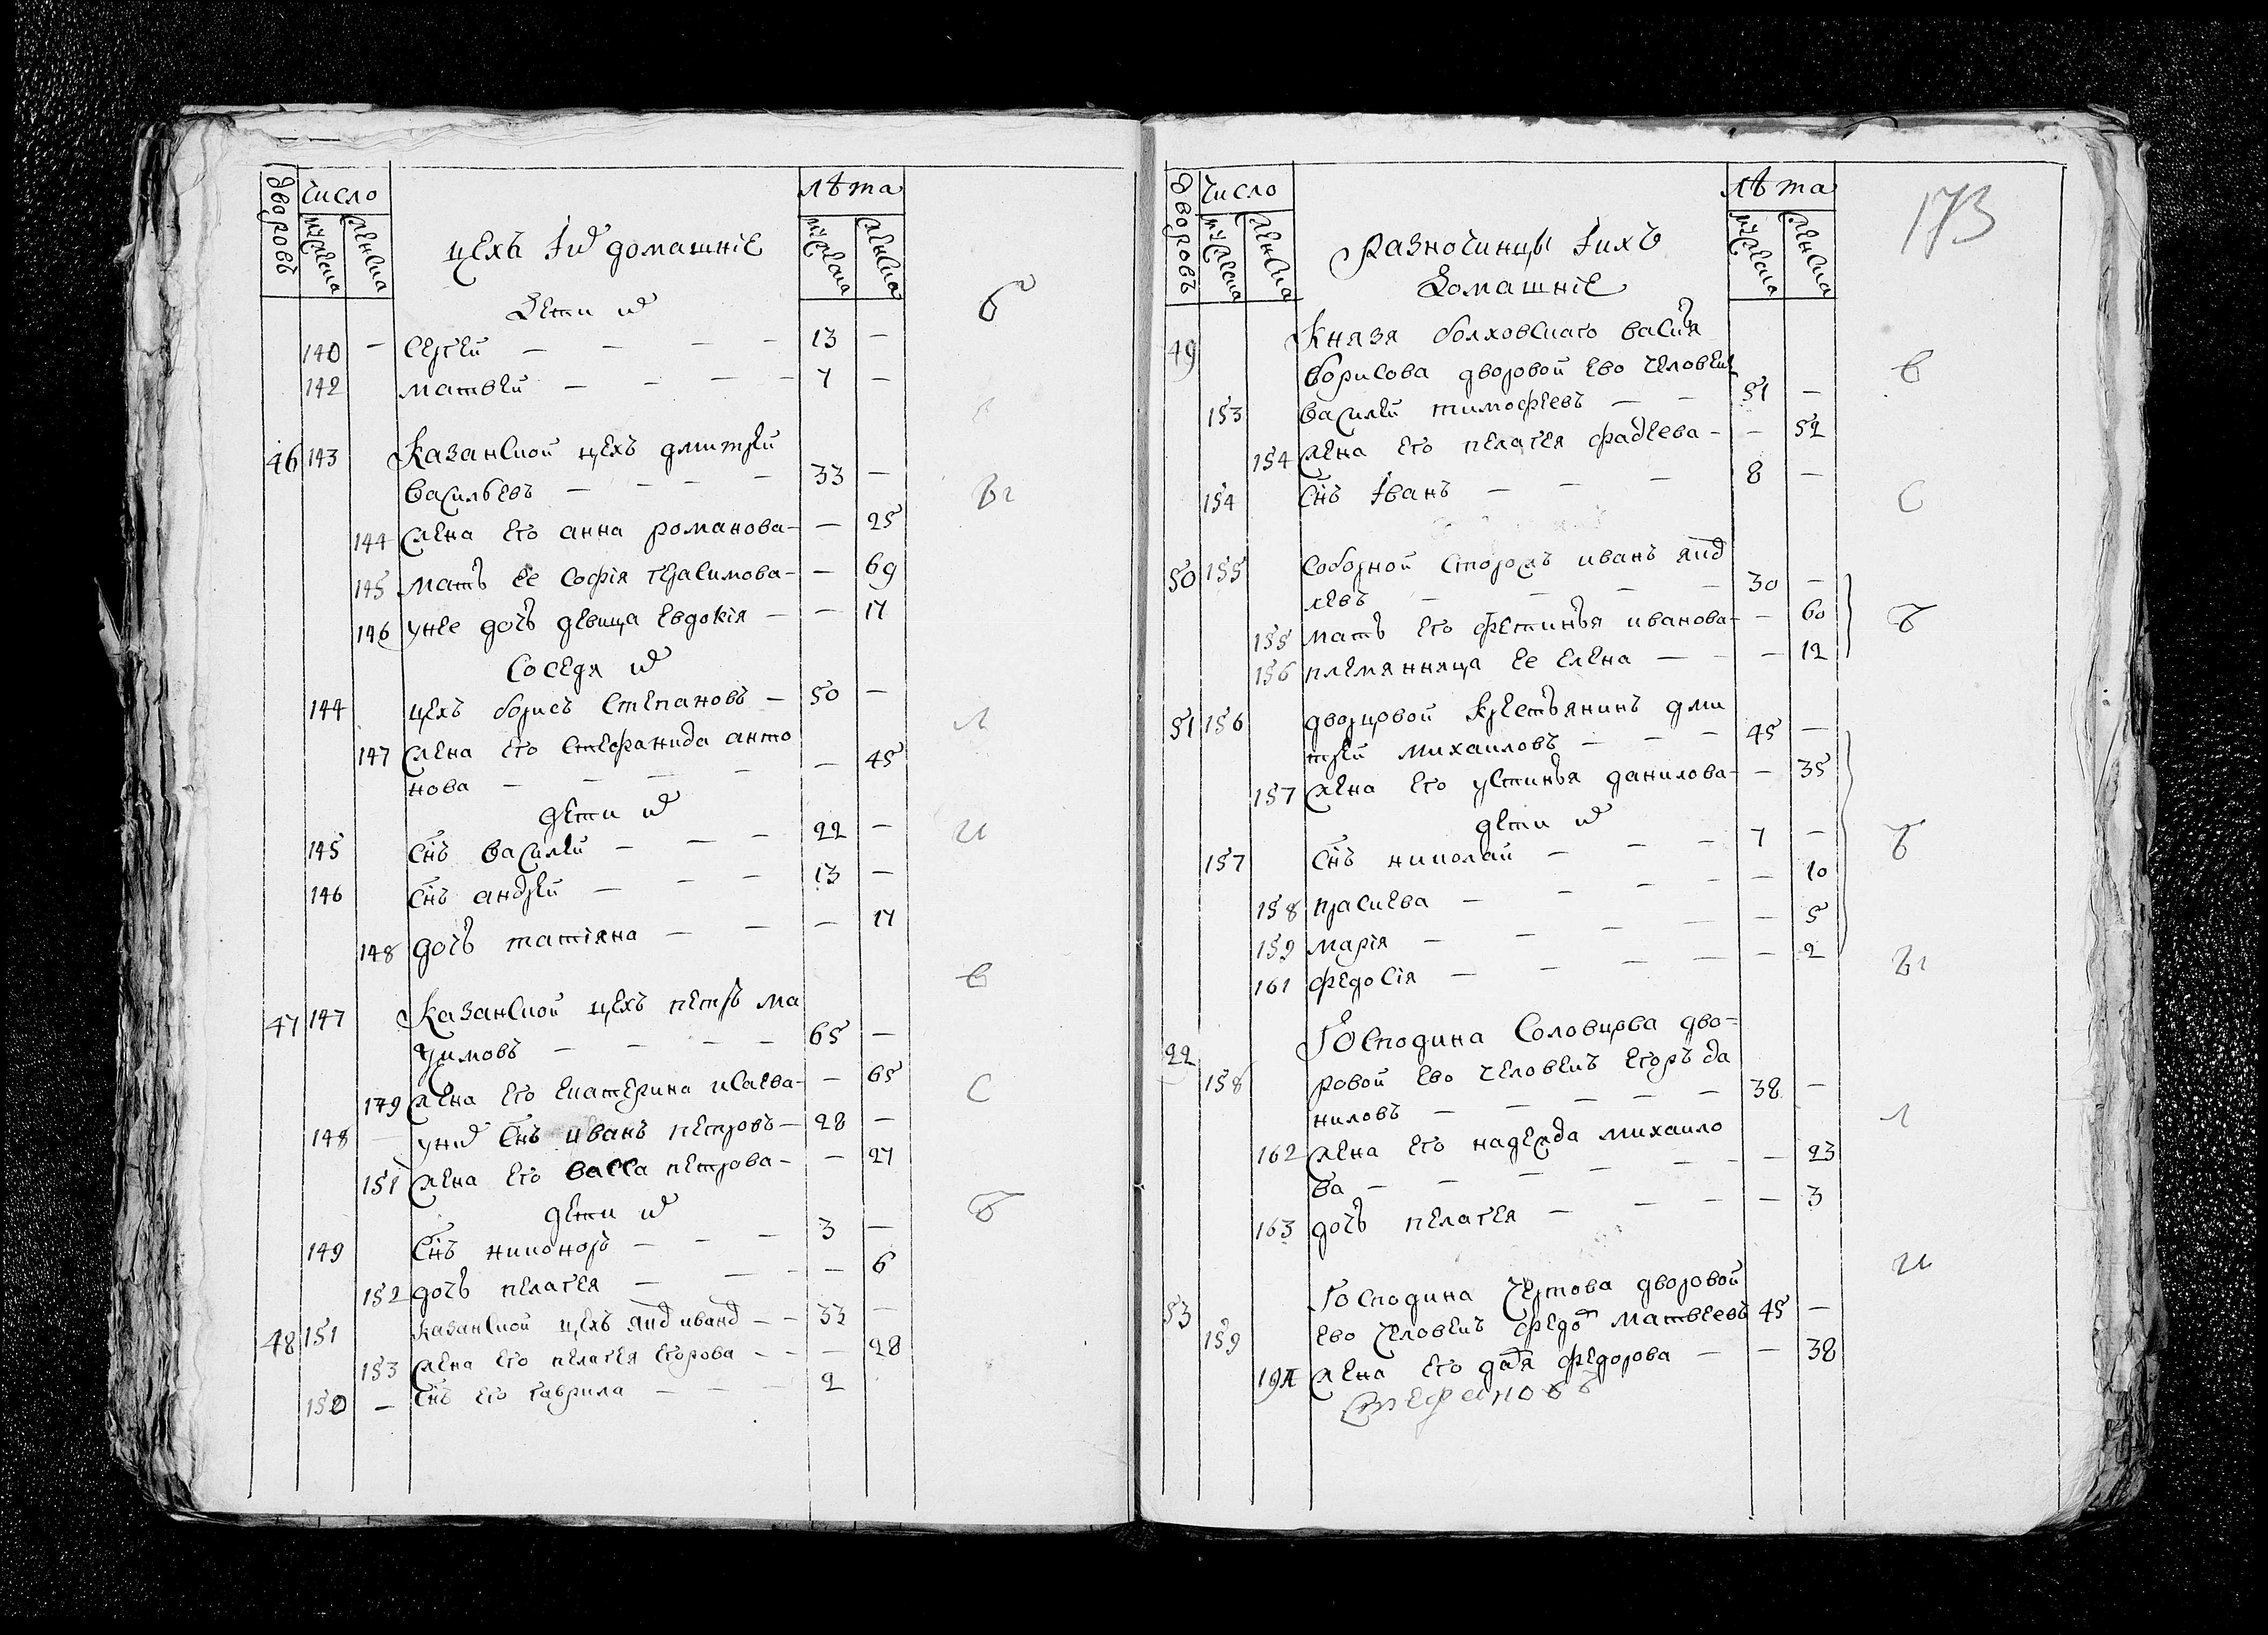 дворовъ число лѣта
мужеска женска мужеска женска
цехъ и их домашніе
Дети их
140 – Сергей – – – – 13 –
142 матвей – – – – 7 –
46 143 Казанской цехъ дмитрей
васильевъ – – – – 33 –
144 жена его анна романова – – 25
145 мать ее софія герасимова – – 69
146 у нее дочь девица Евдокія – – 17
Соседя их
144 цехъ борисъ Степановъ – 50 –
147 жена его Стефанида анто
нова – – – – – 45
дети их
145 снъ василей – – – 22 –
146 снъ андрей – – – 13 –
148 дочь татіяна – – – – 17
47 147 Казанской цехъ петръ ма
ѯимовъ – – – – 65 –
149 жена его Екатерина исаева – – 65
148 у них снъ иванъ петровъ – 28 –
151 жена его васса петрова – – 27
дети их
149 снъ никоноръ – – – 3 –
152 дочь пелагея – – – – 6
48 151 казанской цехъ яков иванов – – 33 –
153 жена его пелагея Егорова – – – 28
150 – снъ его гаврила – – – 2
173
дворовъ число лѣта
мужеска женска мужеска женска
Разночинцы и ихъ
Домашніе
49 Князя болховскаго васи
борисова дворовой ево человекъ
153 василей тимофеевъ – – 51 –
154 жена его пелагея фадеева – – 52
154 снъ іванъ – – – 8 –
50 155 соборной сторожъ иванъ яков
левъ – – – – 30 –
155 мать его фетинья иванова – – 60
156 племянница ее елена – – – 12
51 156 дворцовой крестьянинъ дми
трей михаиловъ – – – 45 –
157 жена его устинья данилова – – 35
дети их
157 снъ николай – – – 7 –
158 прасковья – – – – – 10
159 марія – – – – – 5
161 федосія – – – – – 2
22 Господина Соловцова дво=
158 ровой ево человекъ Егоръ да
ниловъ – – – – – 38 –
162 жена его надежда михаило
ва – – – – – – 23
163 дочь пелагея – – – – 3
53 Господина Чертова дворовой
159 ево человекъ федор матвеевъ 45 –
19А жена его дарья федорова – – 38
Стефановъ